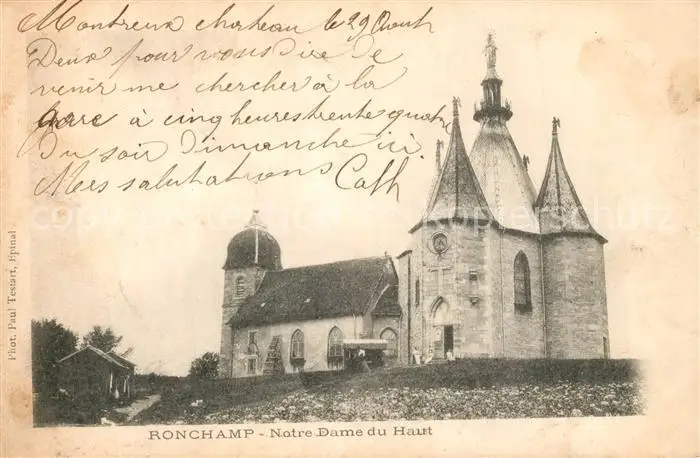 Montreux chateau le 29 Aout
Deux pour vous dire De
venir me chercher à la
gare à cinq heures trente quatre
Du soir Dimanche ici
Mes salutations Cath
Phot. Paul Testart, Epinal.
RONCHAMP - Notre Dame du Haut